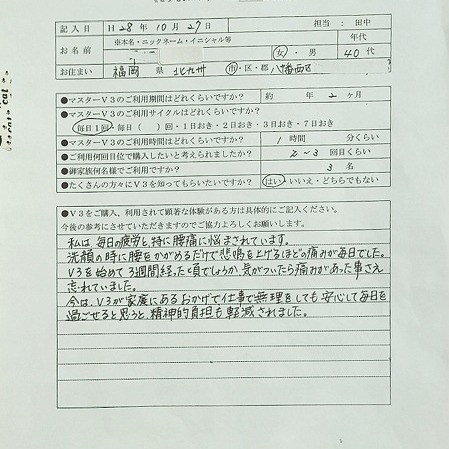 記入日 H 28 年 10 月 27 日 担当 : 田中
お名前 ※本名・ニックネーム・イニシャル等 女・男 年代 40代
お住まい 福岡 県 北九州 市・区・郡 八幡西区
●マスターV3のご利用期間はどれくらいですか? 約 年 2 ヶ月
●マスターV3のご利用サイクルはどれくらいですか?
毎日1回・毎日( )回・1日おき・2日おき・3日おき・7日おき
●マスターV3のご利用時間はどれくらいですか? 1 時間 分くらい
●ご利用何回目位で購入したいと考えられましたか? 2~3 回目くらい
●御家族何名様でご利用ですか? 3 名
●たくさんの方々にV3を知ってもらいたいですか? はい・いいえ・どちらでもない
●V3をご購入、利用されて顕著な体験がある方は具体的にご記入ください。
今後の参考にさせていただきますのでご協力よろしくお願いします。
私は毎日の疲労と特に腰痛に悩まされています。
洗顔の時に腰をかがめるだけで悲鳴を上げるほどの痛みが毎日でした。
V3を始めて3週間経った頃でしょうか気がついたら痛みがあった事さえ
忘れていました。
今は、V3が家庭にあるおかげで仕事で無理をしても安心して毎日を
過ごせると思うと、精神的負担も軽減されました。